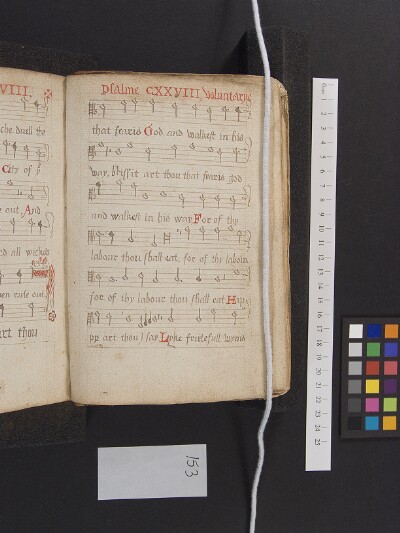 VIII.
che dwell the
City of
e out, And
ed all wicked
art thou
Psalme CXXVIII, Voluntarye
that fearis God and walkest in his
way, blissit art thou that fearis god
and walkest in his way For of thy
laboure thou shall eat, for of thy labour
for of thy laboure thou shall eat Hap
py art thou I say Lyke frutefull wynis
153
1 2 3 4 5 6 7 8 9 10 11 12 13 14 15 16 17 18 19 20 21 22 23 24 25